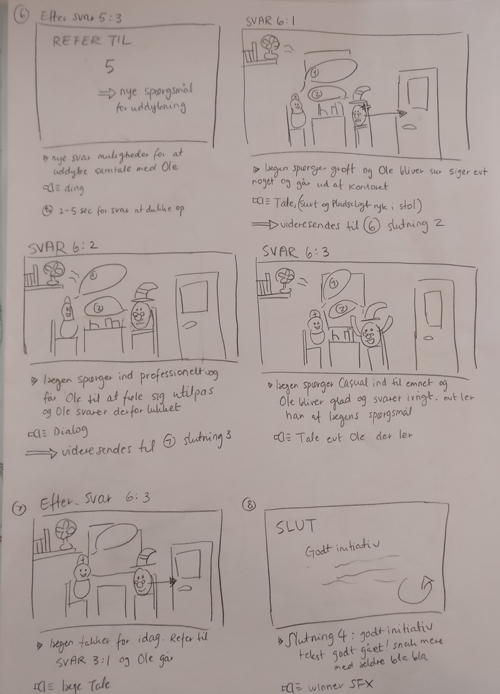 6 Efter svar 5:3
REFER TIL
5
⇒ nye spørgsmål
for uddybning
nye svar muligheder for at
uddybe samtale med Ole
ding
2-5 sec for svar at dukke op
SVAR 6:1
1
2
Lægen spørger groft og Ole bliver sur siger evt
noget og går ud af kontoret
Tale, (Surt og Pludseligt ryk i stol)
⇒ videresendes til 6 slutning 2
SVAR 6:2
1
2
Lægen spørger ind professionelt og
får Ole til at føle sig utilpas
og Ole svarer derfor lukket
Dialog
⇒ videresendes til 7 slutning 3
SVAR 6:3
1
2
Lægen spørger Casual ind til emnet og
Ole bliver glad og svarer ivrigt. evt ler
han af lægens spørgsmål
Tale evt Ole der ler
7 Efter svar 6:3
Lægen takker for idag. Refer til
SVAR 3:1 og Ole går
Læge Tale
8
SLUT
Godt initiativ
Slutning 4: godt initiativ
tekst godt gået! snak mere
med ældre bla bla
winner SFX